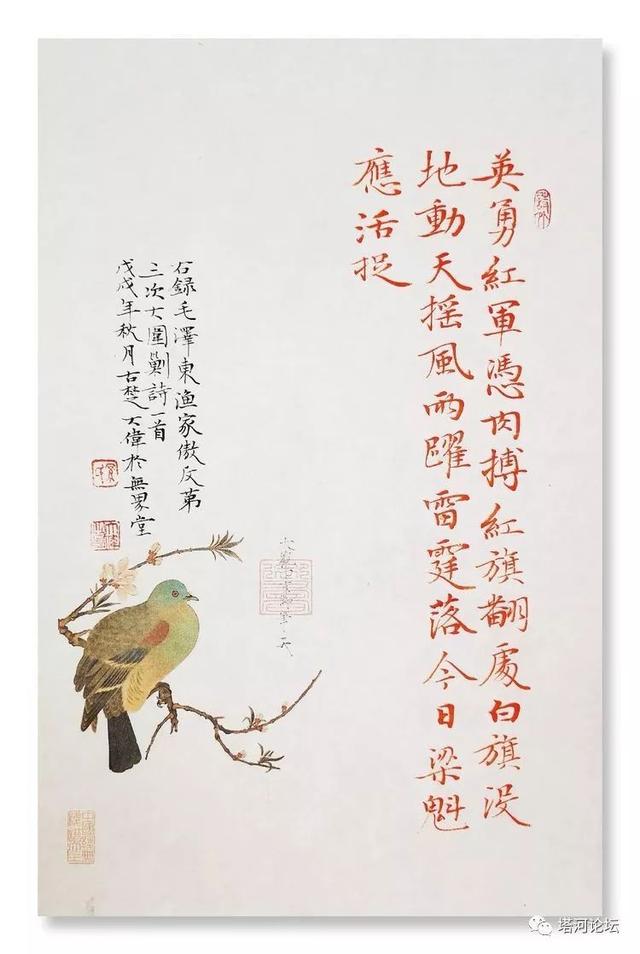 英勇紅軍憑肉搏紅旗翻處白旗没
地動天摇風雨躍雷霆落今日梁魁
應活捉
右録毛澤東渔家傲反第
三次大圍剿詩一首
戊戌年秋月古楚大偉於無界堂
塔河论坛